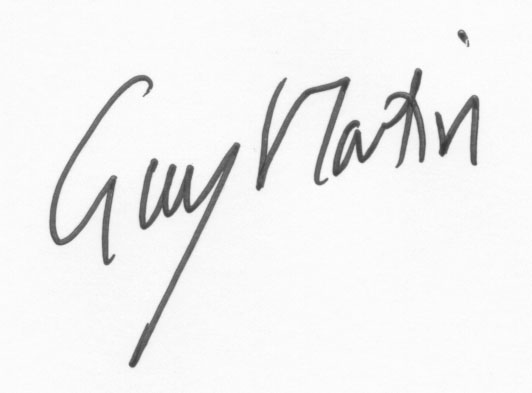 Guy Martin